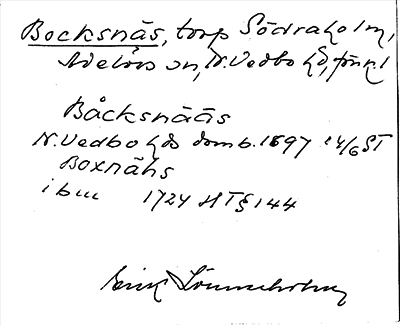 Bocksnäs, torp Södraholm,
Adelövs sn, N. Vedbo hd, Jönk. l
Båcksnääs
N. Vedbo hds domb. 1697 14/6 ST
Boxnähs
ibm 1724 HT § 144
Erik